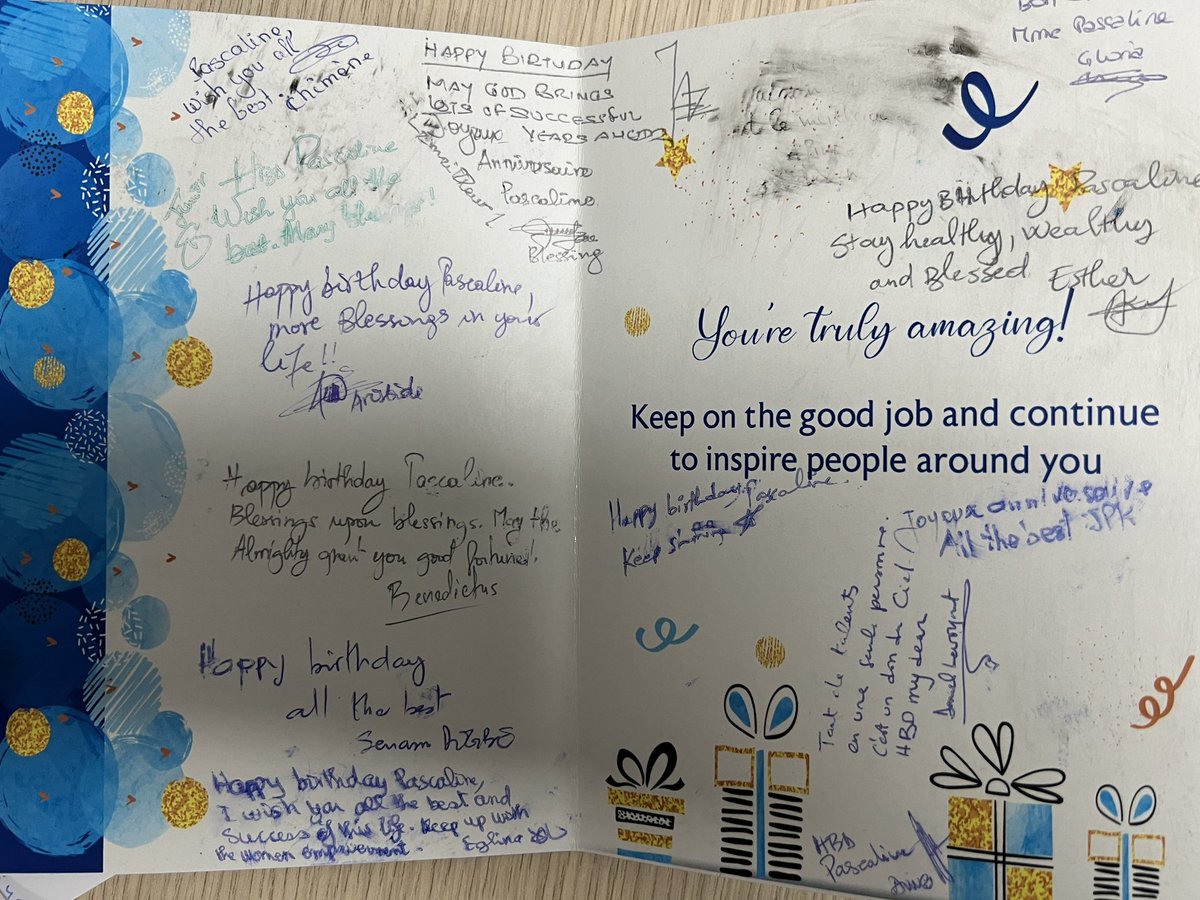 Pascaline
wish you all
the best
Chimène
HAPPY BIRTHDAY
MAY GOD BRINGS
LOTS OF SUCCESSFUL
YEARS AHEAD
Joyeux
Anniversaire
Pascaline
Blessing
Junior
HBD Pascaline
Wish you all the
best. Many blessings!
Happy birthday Pascaline,
more Blessings in your
life!!
Aristide
Happy birthday Pascaline.
Blessings upon blessings. May the
Almighty grant you good fortunes!
Benedictus
Happy birthday
all the best
Senam
Happy birthday Pascaline,
I wish you all the best and
success of this life. Keep up with
the women empowerment.
Eglina
Mme Pascaline
Gloria
Happy BIrthday Pascaline
Stay healthy, wealthy
and Blessed
Esther
You're truly amazing!
Keep on the good job and continue
to inspire people around you
Happy birthday Pascaline.
Keep shining
Joyeux anniversaire
All the best JPK
Tant de talents
en une seule personne.
C'est un don du Ciel.
HBD my dear
HBD
Pascaline